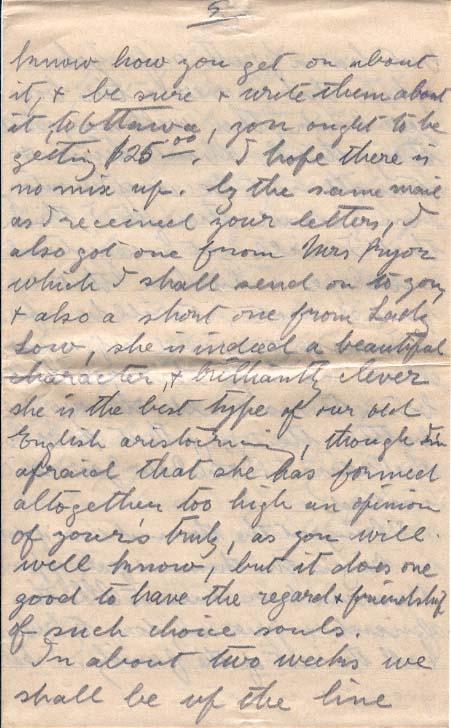 5
know how you get on about
it, & be sure & write them about
it to Ottawa, you ought to be
getting $25.00. I hope there is
no mix up. by the same mail
as I received your letters, I
also got one from Mrs Pryor
which I shall send on to you
& also a short one from Lady
Low, she is indeed a beautiful
character, & brilliantly clever
she is the best type of our old
English aristocracy, though I'm
afraid that she has formed
altogether too high an opinion
of your's truly, as you will
well know, but it does one
good to have the regard & friendship
of such choice souls.
In about two weeks we
shall be up the line